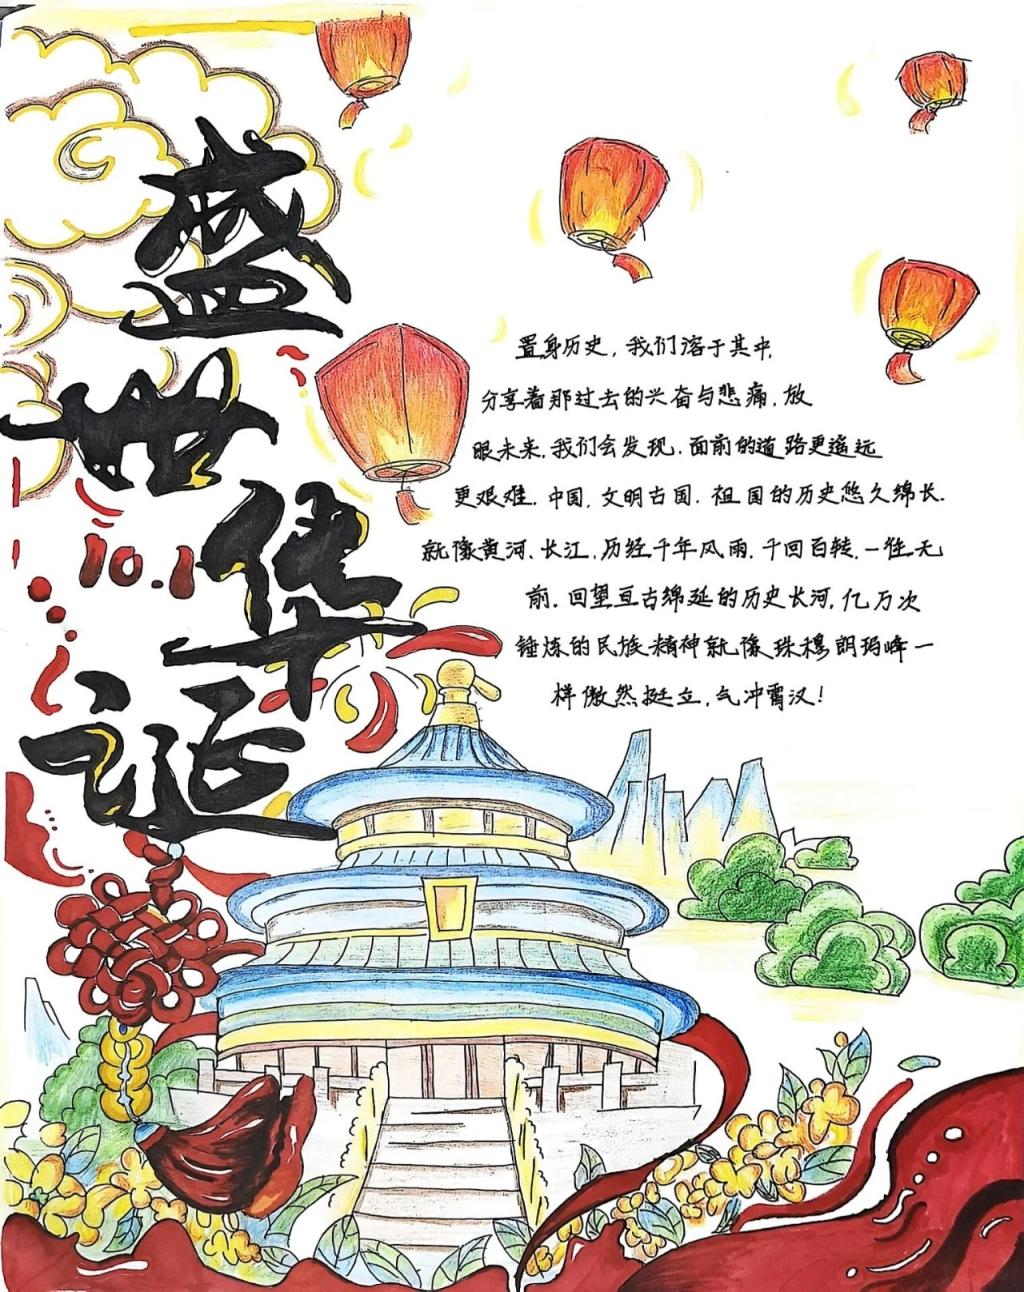 盛世华诞
10.1
置身历史，我们溶于其中，
分享着那过去的兴奋与悲痛，放
眼未来，我们会发现，面前的道路更遥远
更艰难．中国，文明古国．祖国的历史悠久绵长．
就像黄河、长江，历经千年风雨，千回百转，一往无
前．回望亘古绵延的历史长河，亿万次
锤炼的民族精神就像珠穆朗玛峰一
样傲然挺立，气冲霄汉！